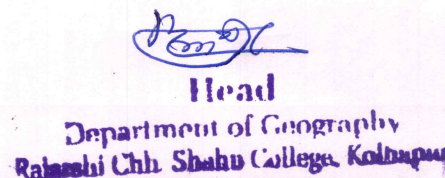 Head
Department of Geography
Rajarshi Chh. Shahu College, Kolhapur